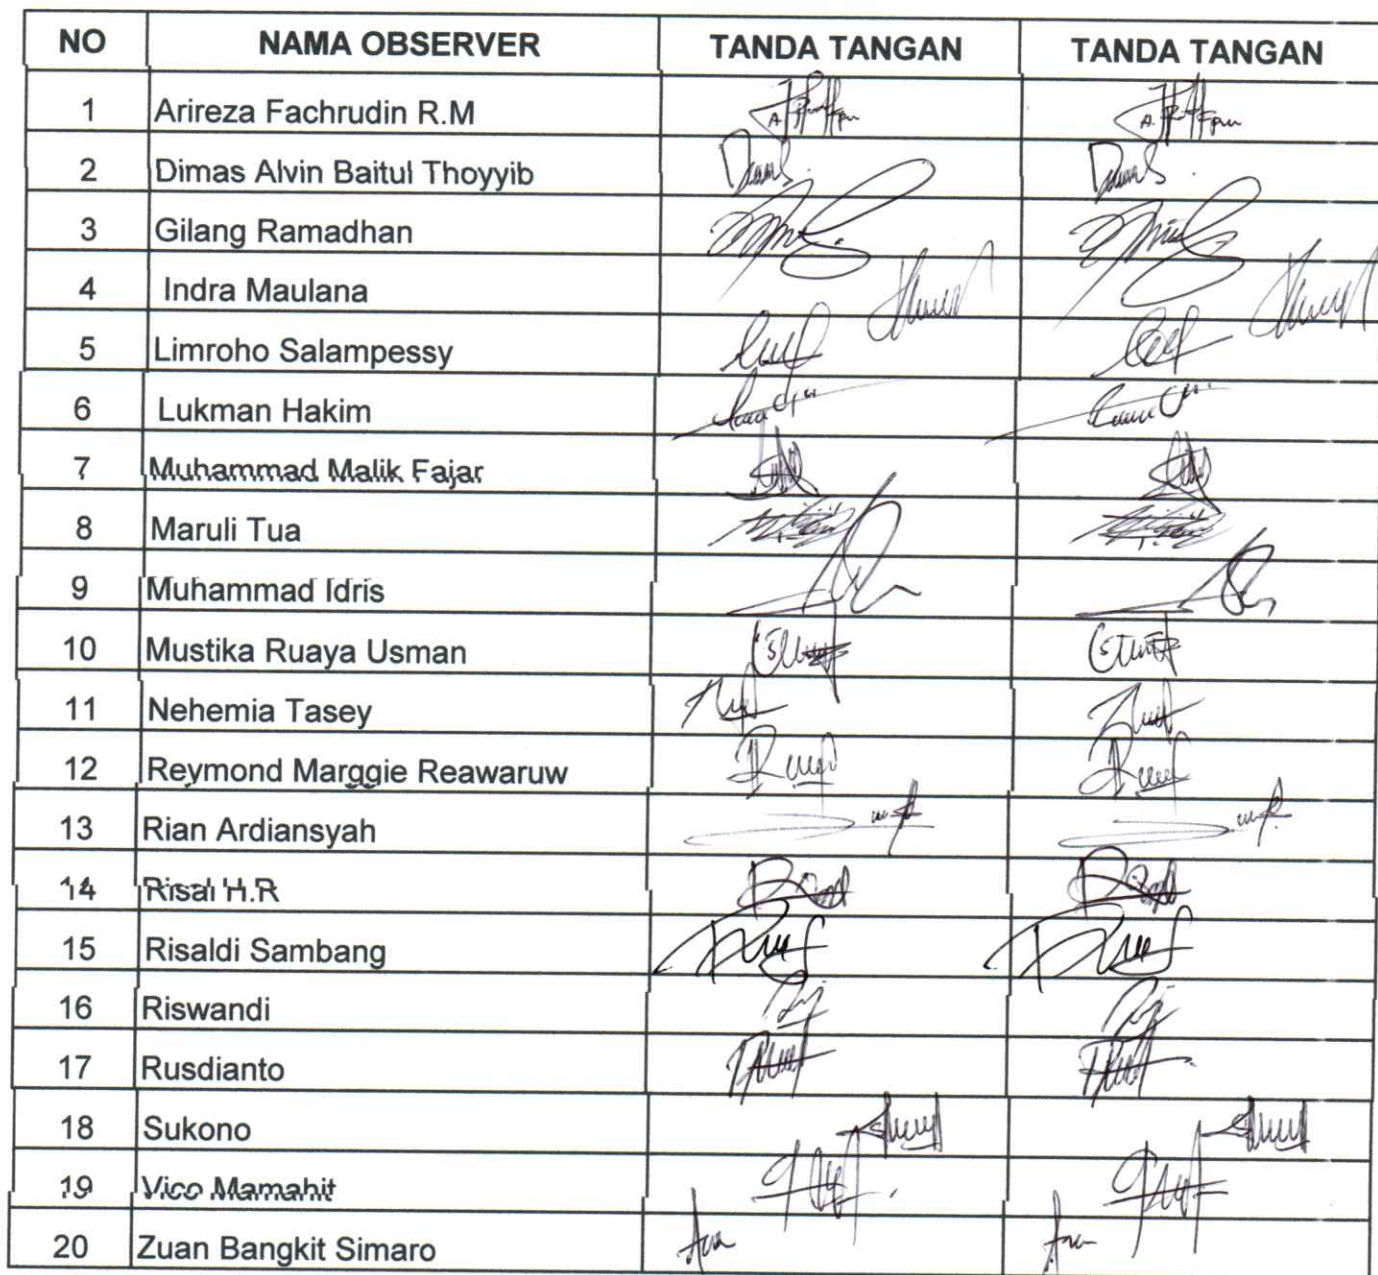 NO NAMA OBSERVER TANDA TANGAN TANDA TANGAN
1 Arireza Fachrudin R.M
2 Dimas Alvin Baitul Thoyyib
3 Gilang Ramadhan
4 Indra Maulana
5 Limroho Salampessy
6 Lukman Hakim
7 Muhammad Malik Fajar
8 Maruli Tua
9 Muhammad Idris
10 Mustika Ruaya Usman
11 Nehemia Tasey
12 Reymond Marggie Reawaruw
13 Rian Ardiansyah
14 Risal H.R
15 Risaldi Sambang
16 Riswandi
17 Rusdianto
18 Sukono
19 Vico Mamahit
20 Zuan Bangkit Simaro